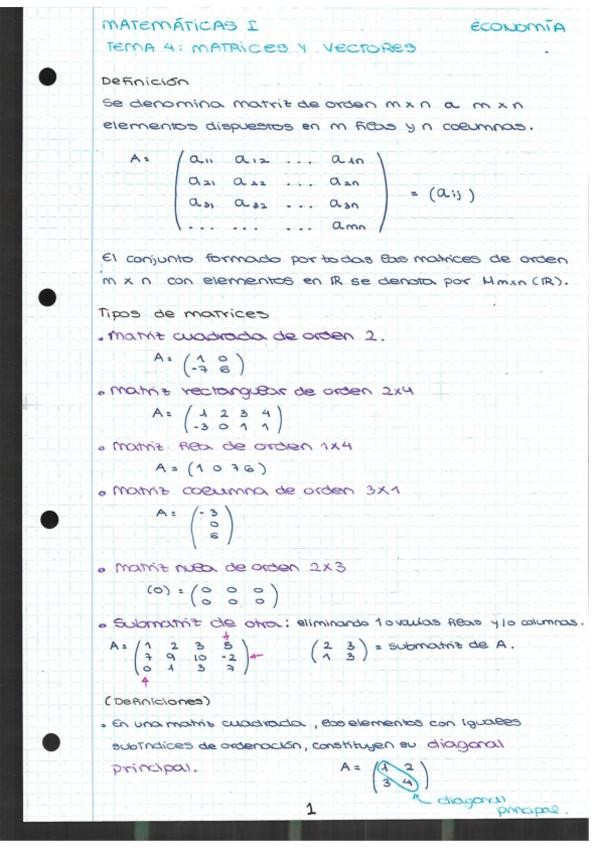 MATEMÁTICAS I ECONOMÍA
TEMA 4: MATRICES Y VECTORES
Definición
Se denomina matriz de orden m x n a m x n
elementos dispuestos en m filas y n columnas.
A = ( a11 a12 ... a1n
a21 a22 ... a2n
a31 a32 ... a3n
... ... ... amn ) = (aij)
El conjunto formado por todas las matrices de orden
m x n con elementos en ℝ se denota por Mmxn (ℝ).
Tipos de matrices
• Matriz cuadrada de orden 2.
A = ( 1 0
-7 6 )
• Matriz rectangular de orden 2x4
A = ( 1 2 3 4
-3 0 1 1 )
• Matriz fila de orden 1x4
A = (1 0 7 6)
• Matriz columna de orden 3x1
A = ( -3
0
6 )
• Matriz nula de orden 2x3
(0) = ( 0 0 0
0 0 0 )
• Submatriz de otra: eliminando 1 o varias filas y/o columnas.
A = ( 1 2 3 5
7 9 10 -2
0 1 3 7 )
( 2 3
1 3 ) = submatriz de A.
(Definiciones)
• En una matriz cuadrada, los elementos con iguales
subíndices de ordenación, constituyen su diagonal
principal.
A = ( 1 2
3 4 )
diagonal
principal.
1